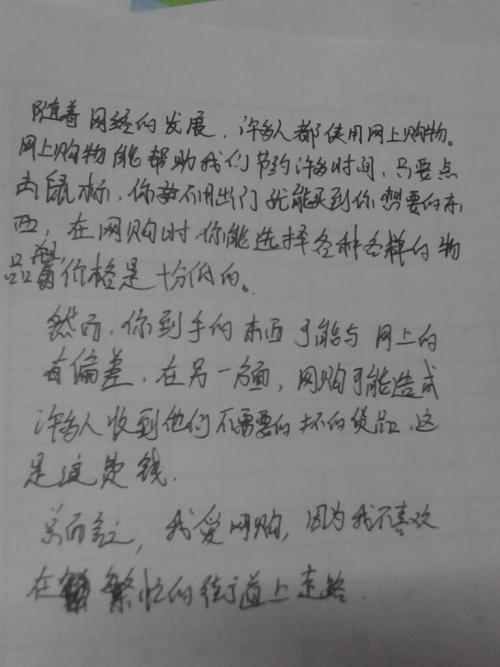 随着网络的发展，许多人都使用网上购物。
网上购物能帮助我们节约许多时间，只要点
击鼠标，你要不用出门就能买到你想要的东
西，在网购时你能选择各种各样的物
品，价格是十分低的。
然而，你到手的东西可能与网上的
有偏差，在另一方面，网购可能造成
许多人收到他们不需要的坏的货品，这
是浪费钱.
总而言之，我爱网购，因为我不喜欢
在繁忙的街道上走路.